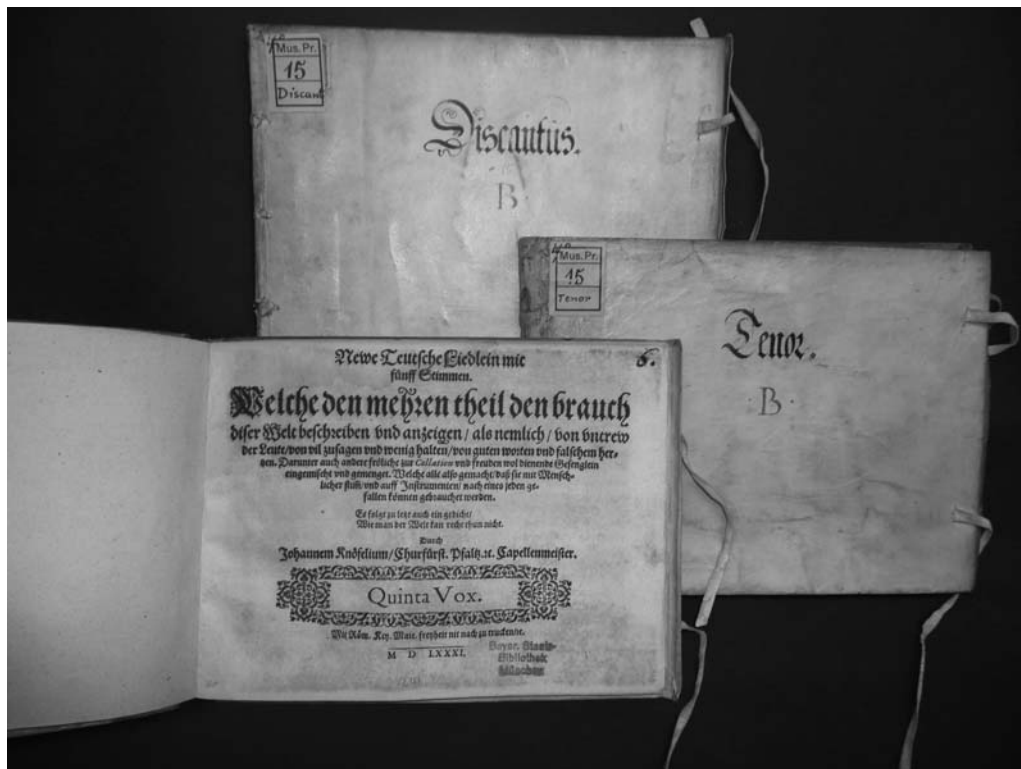 Mus. Pr.
15
Discant
Discantus.
B
4°
Mus. Pr.
15
Tenor
Tenor.
B
Newe Teutsche Liedlein mit
fünff Stimmen.
6.
Welche den mehren theil den brauch
diser Welt beschreiben vnd anzeigen / als nemlich / von vntrew
der Leute/von vil zusagen vnd wenig halten/von guten worten vnd falschem her-
tzen. Darunter auch andere fröliche zur Collation vnd freuden wol dienende Gesenglein
eingemischt vnd gemenget. Welche alle also gemacht/daß sie mit Mensch-
licher stim̃/vnd auff Instrumenten/ nach eines jeden ge-
fallen können gebrauchet werden.
Es folgt zu letzt auch ein gedicht/
Wie man der Welt kan recht thun nicht.
Durch
Johannem Knöfelium/Churfürst. Pfaltz.ꝛc. Capellenmeister.
Quinta Vox.
Mit Röm. Key. Maie. freyheit nit nach zu trucken/ꝛc.
M D LXXXI.
Bayer. Staats-
Bibliothek
München